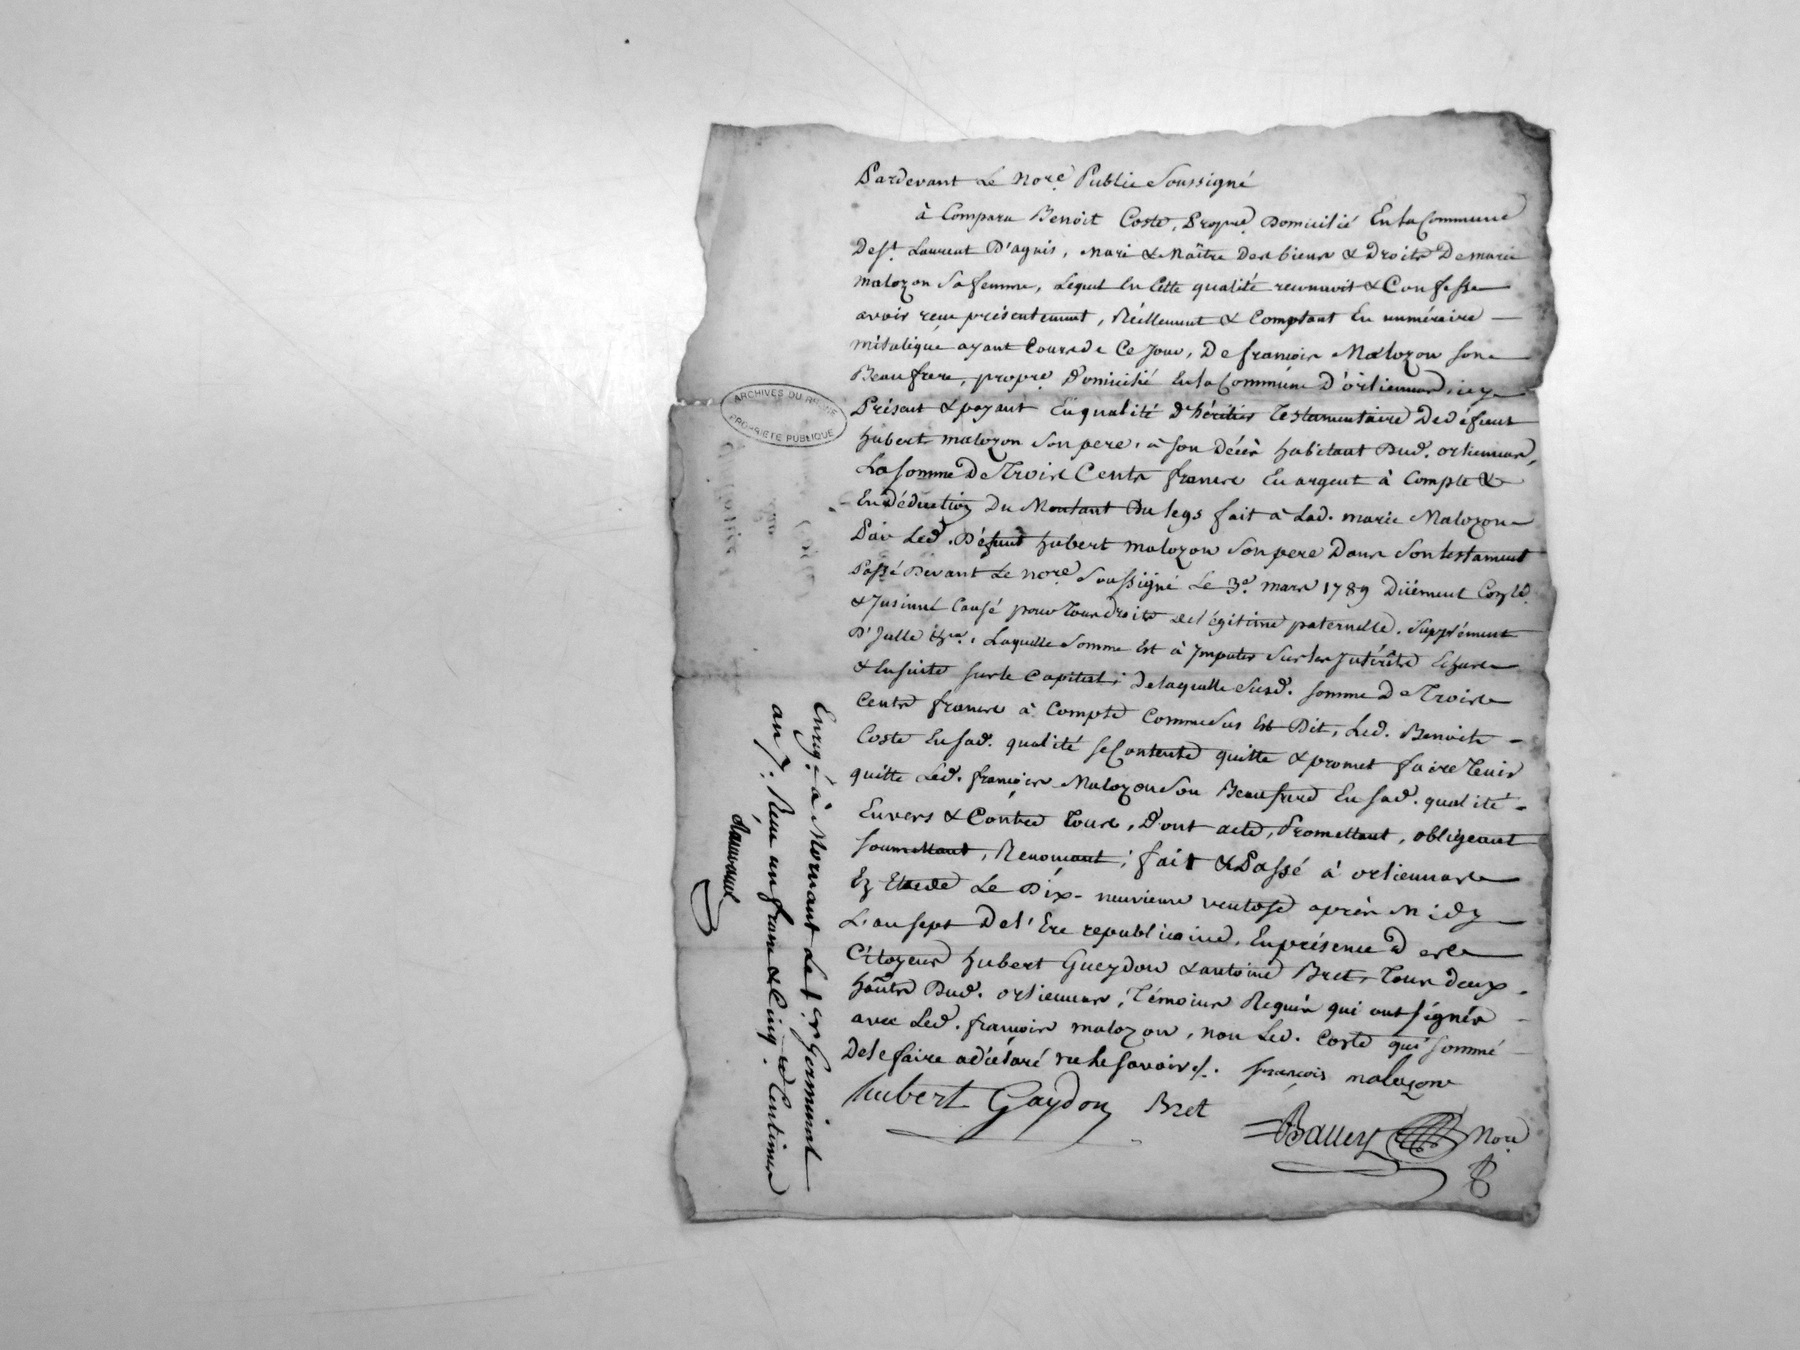 Pardevant Le Nore. Public Soussigné
à Comparu Benoit Coste, Propre. Domicilié En la Commune
De St. Laurent D'agnis, mari & Maître Des biens & Droits De marie
malozon Sa femme, Lequel En Cette qualité reconnoit & Confesse
avoir reçu présentement, Réellement & Comptant En numéraire
métalique ayant Cours de Ce Jour, De françois Malozon Son
Beaufrere, propre. Domicilié En la Commune D'orliennas, icy
Présent & payant En qualité d'héritier Testamentaire De défunt
hubert malozon Son pere, à Son Décès habitant Dud. orliennas,
La Somme De Trois Cents francs En argent à Compte &
En Déduction Du Montant Du legs fait à Lad. marie Malozon
Par Led. Défunt hubert malozon Son pere Dans Son testament
Passé Devant Le nore. Soussigné Le 3e. mars 1789 Düement
& Insinué Causé pour Tous droits de légitime paternelle, Supplément
D'Jcelle &ca. Laquelle Somme Est à Jmputer Sur les Jntérêts Echus
& Ensuite Sur le Capital; De laquelle Susd. Somme De Trois
Cents francs à Compte Comme Sus Est Dit, Led. Benoit
Coste En Sad. qualité Se Contente quitte & promet faire Tenir
quitte Led. françois Malozon Son Beaufrere En Sad. qualité
Envers & Contre Tous, Dont acte, Promettant, obligeant
Soumettant, Renonçant; fait & Passé à orliennas
Ez Etude Le Dix-neuvieme ventose après Midy
L'an Sept De l'Ere republicaine, En présence Des
Citoyens hubert Gueydon & antoine Bret, Tous deux
hants Dud. orliennas, Témoins Requis qui ont Signés
avec Led. françois malozon, non Led. Coste qui Sommé
De le faire a déclaré ne le Savoir ./.
françois malozon
hubert Gaydon
Bret
Balley Nore.
Enreg. à Mornant Le 1er Germinal
an 7. Reçu un franc & Cinq Centimes
ARCHIVES DU RHÔNE
PROPRIÉTÉ PUBLIQUE